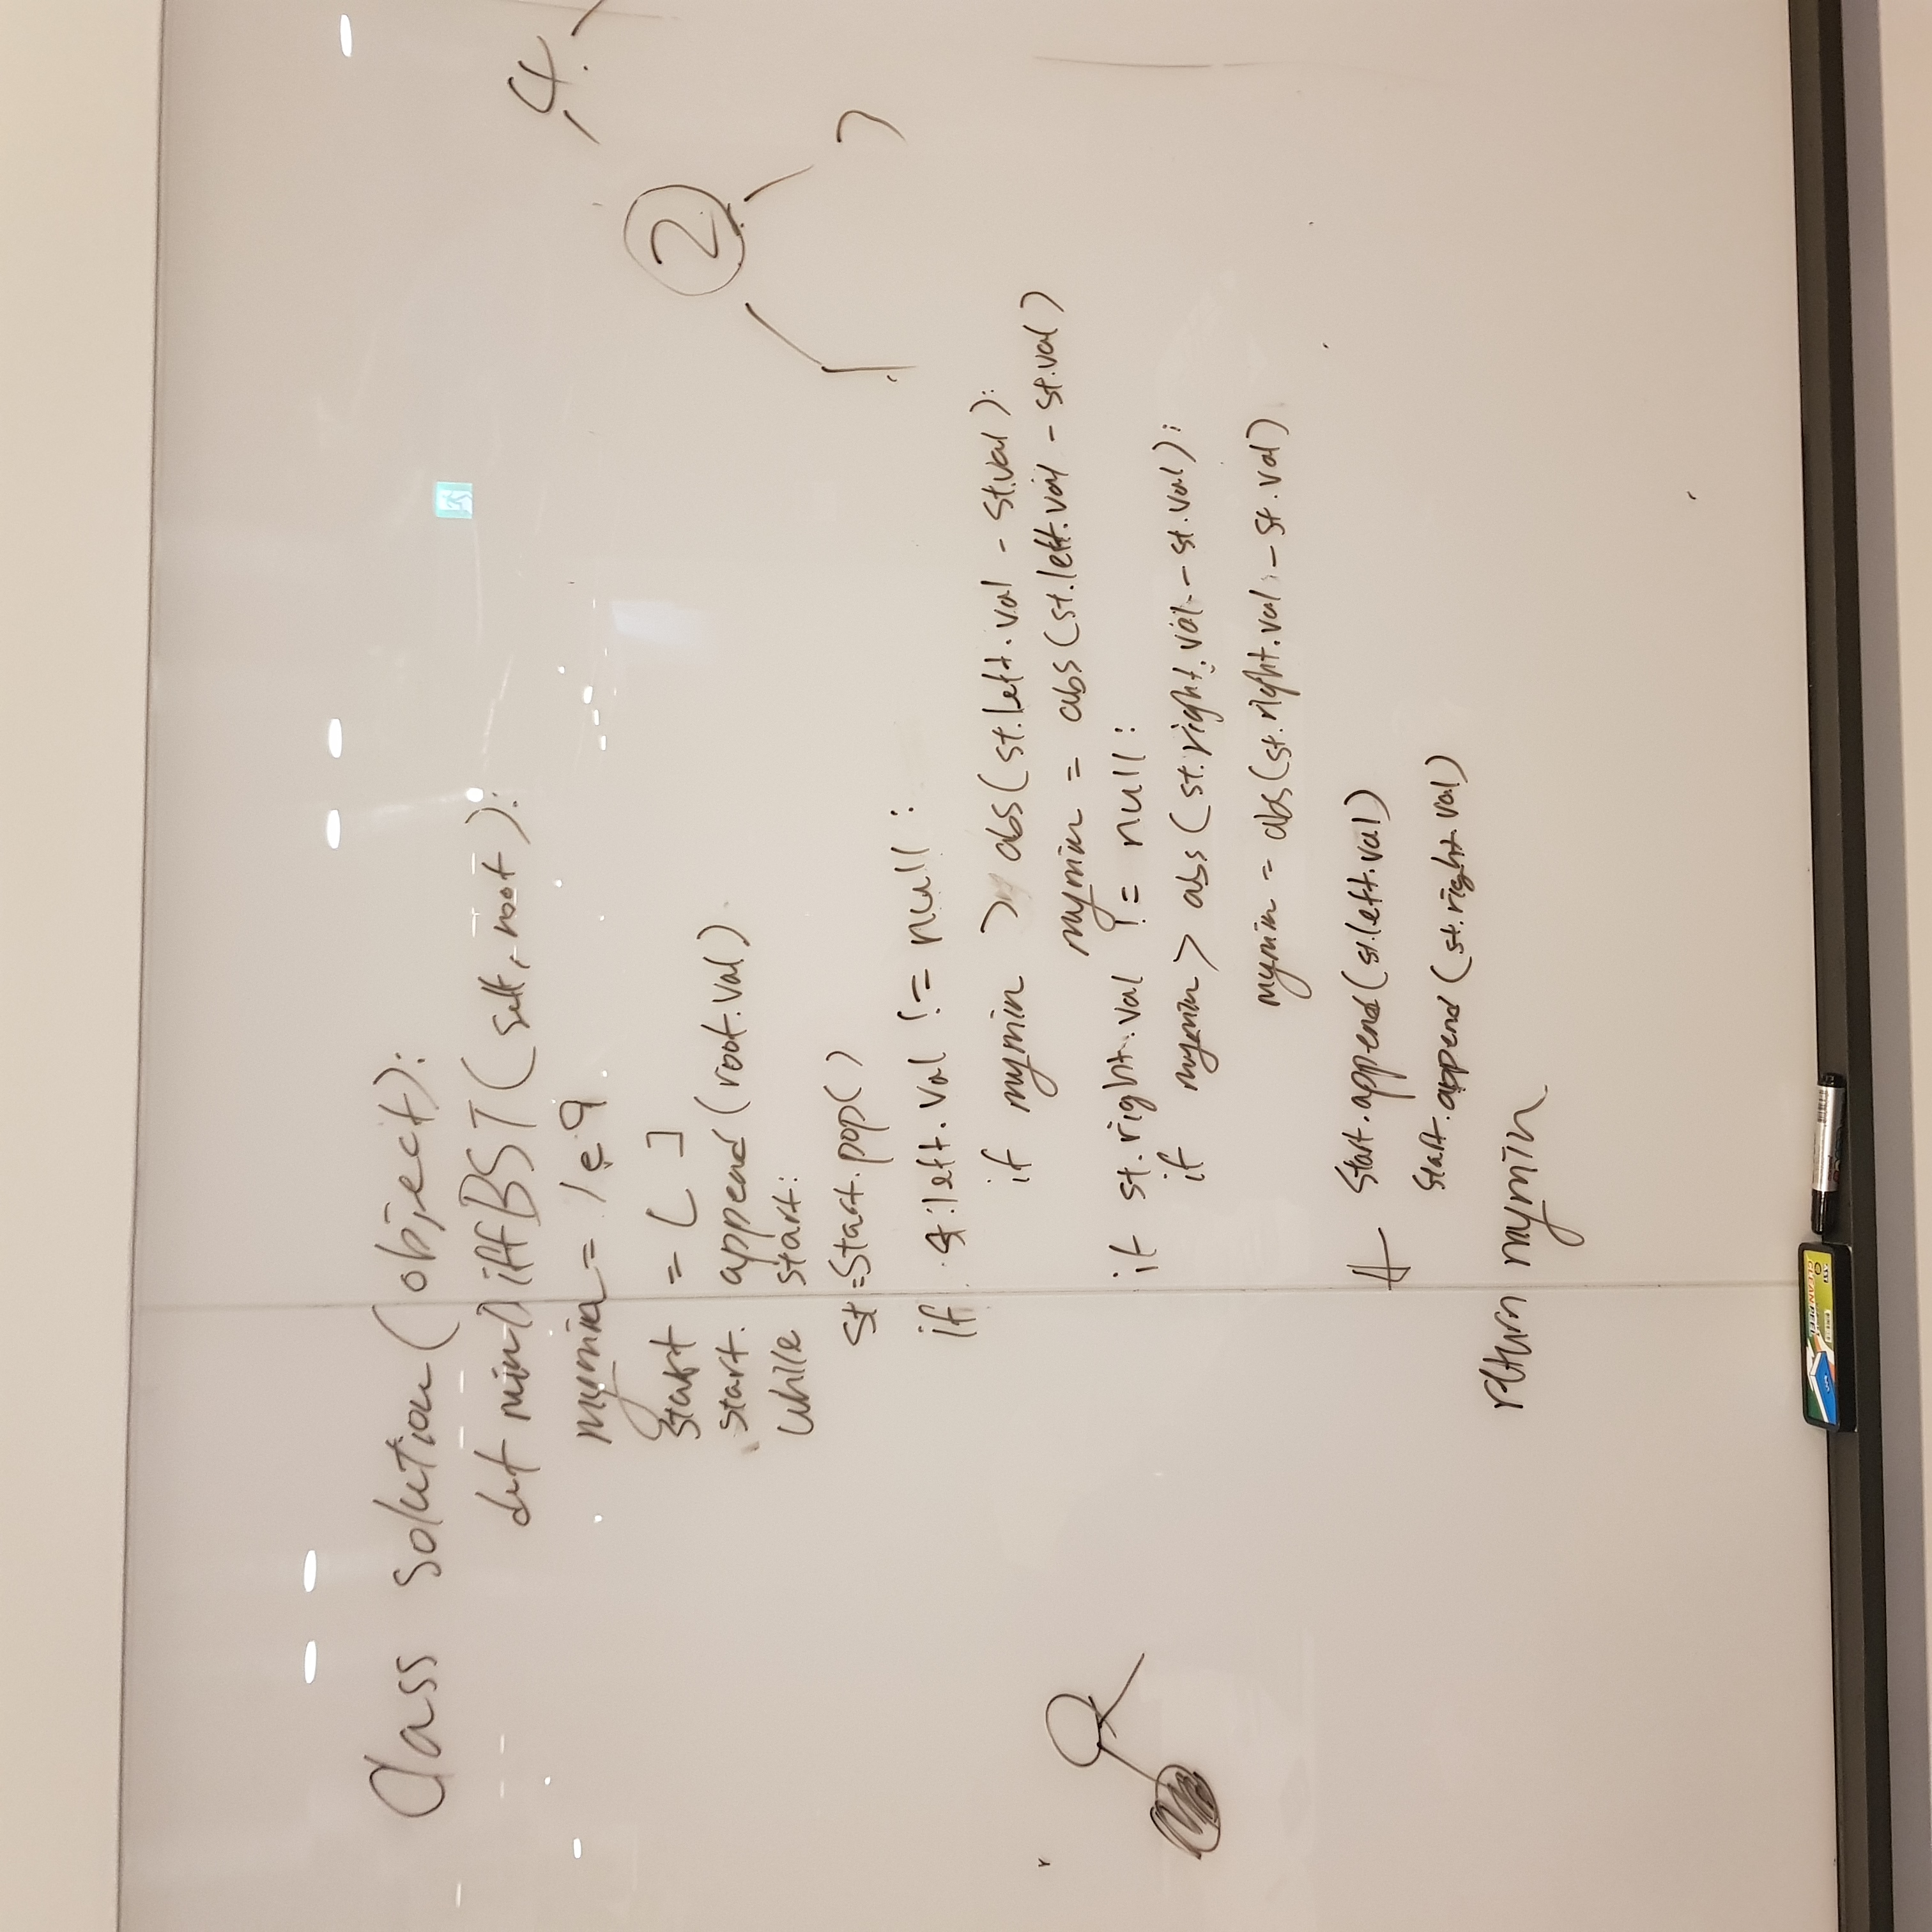 Class solution(object):
def minDiffBST(self, root):
mymin = 1e9
start = [ ]
start. append(root.val)
while start:
st=start.pop()
if st.left.val != null:
if mymin > abs(st.left.val - st.val):
mymin = abs(st.left.val - st.val)
if st.right.val != null:
if mymin > abs(st.right.val - st.val):
mymin = abs(st.right.val - st.val)
start.append(st.left.val)
start.append(st.right.val)
return mymin
4
2
1
CLEAN PEEL